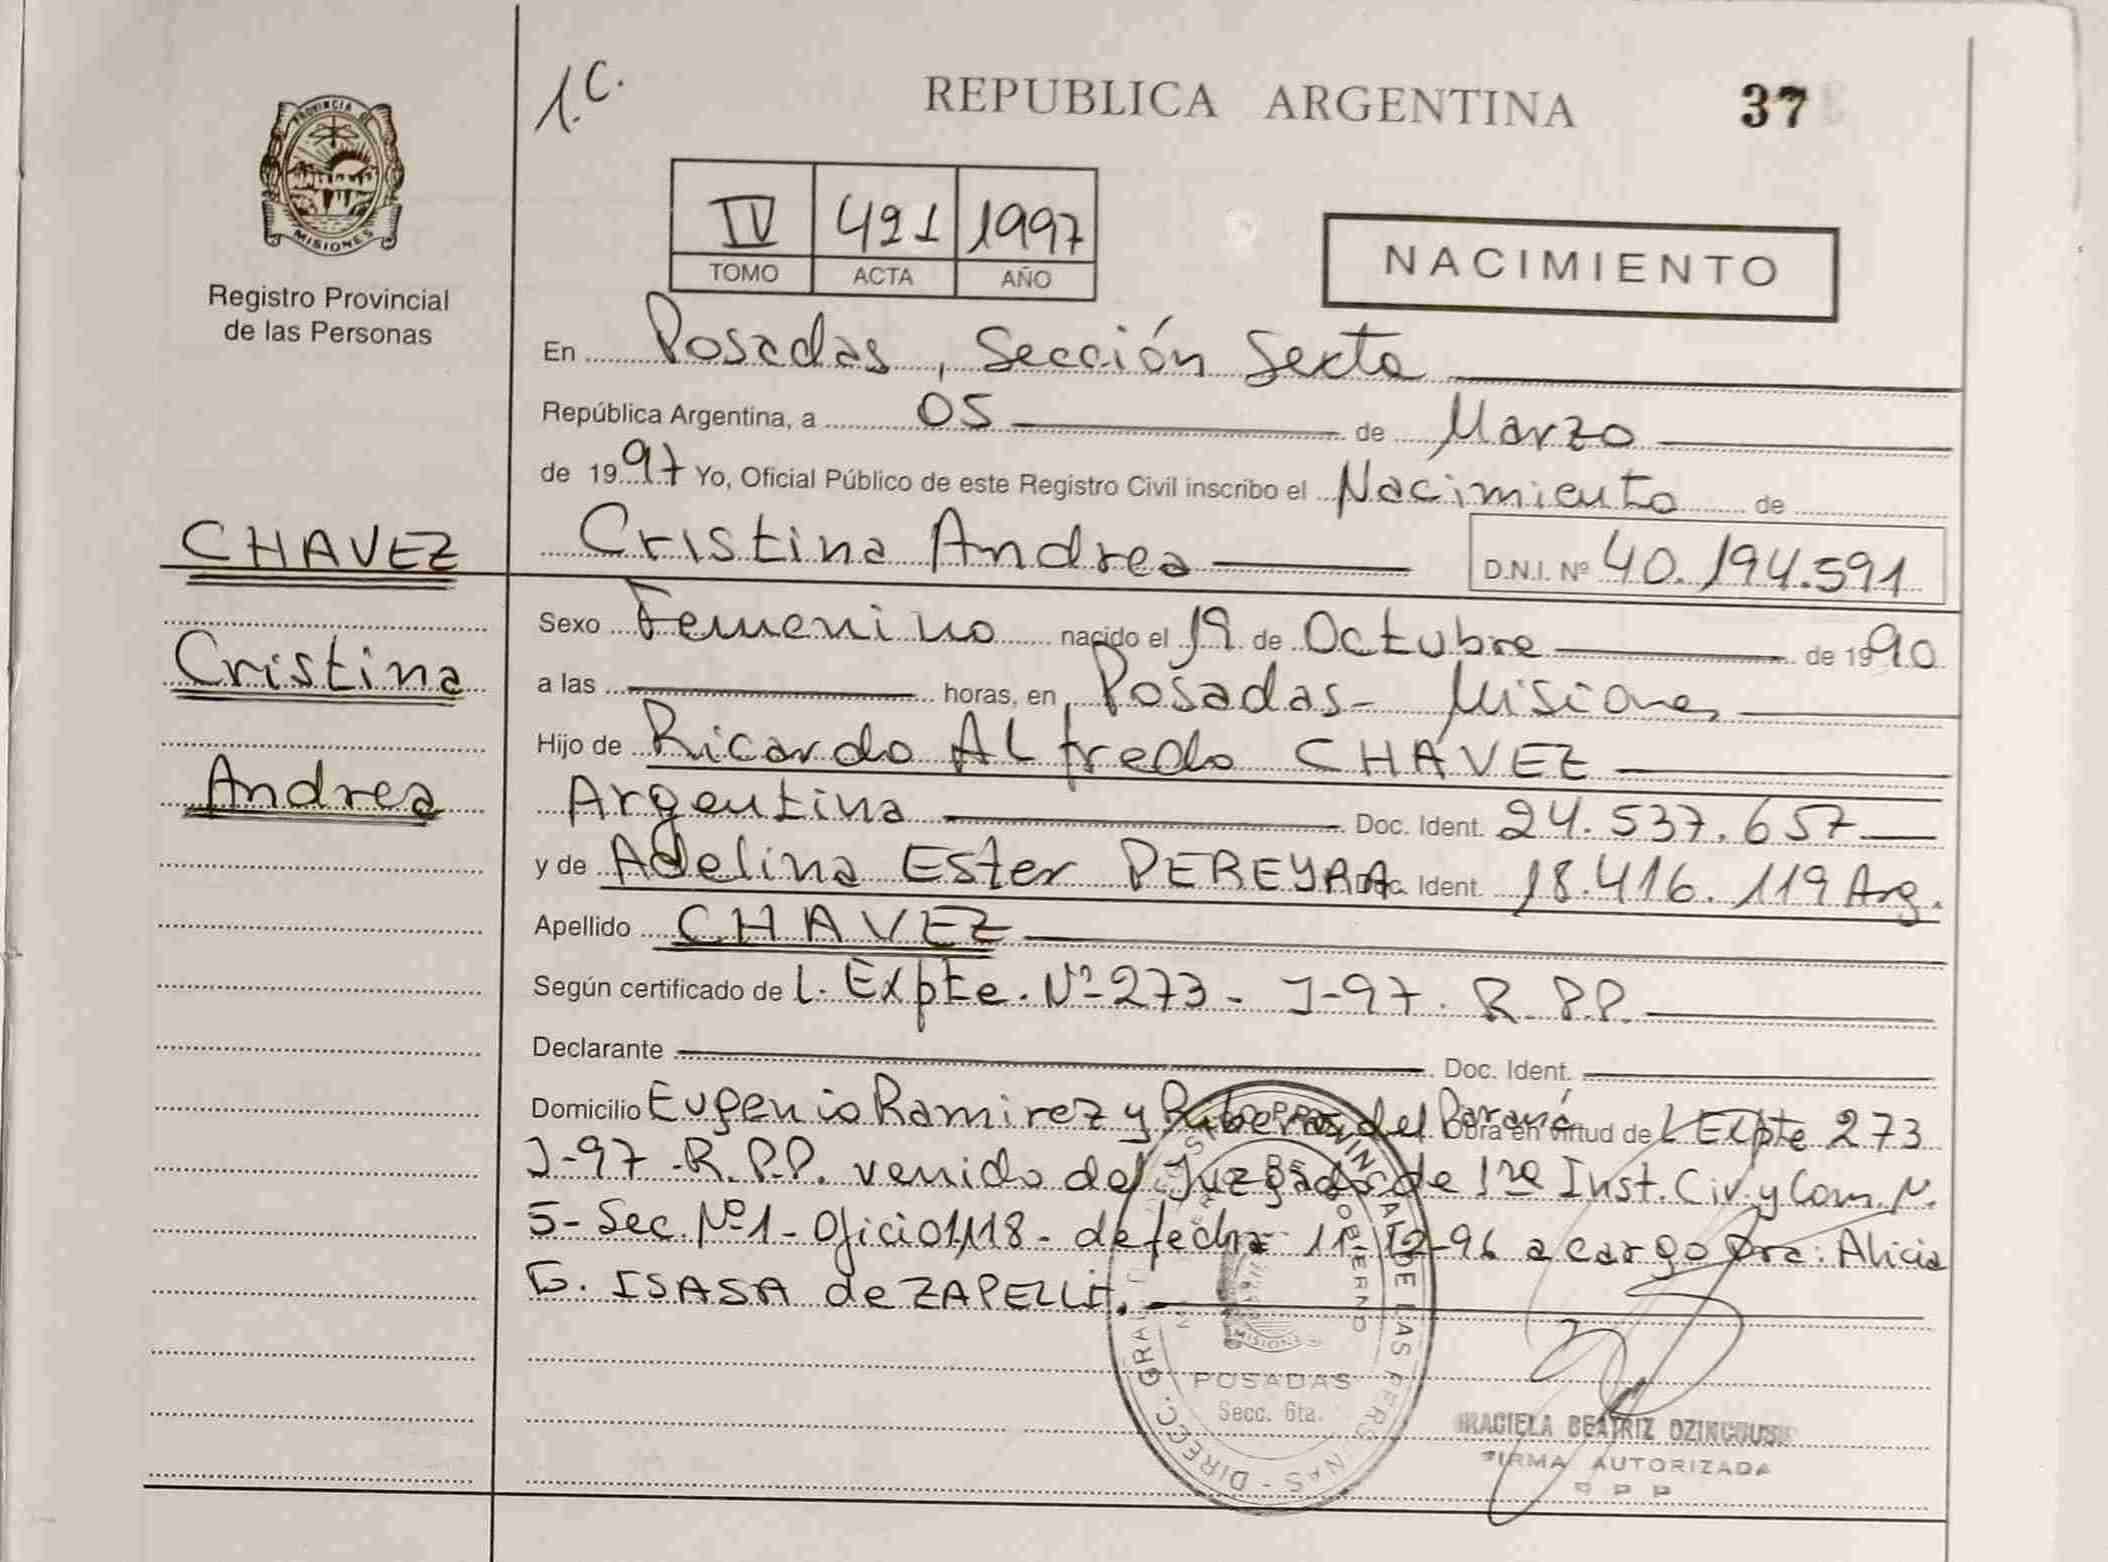 1.C.
REPUBLICA ARGENTINA 37
PROVINCIA DE MISIONES
Registro Provincial
de las Personas
IV 491 1997
TOMO ACTA AÑO
NACIMIENTO
En Posadas, Sección Sexta
República Argentina, a 05 de Marzo
de 1997 Yo, Oficial Público de este Registro Civil inscribo el Nacimiento de
CHAVEZ
Cristina Andrea D.N.I. Nº 40.194.591
Sexo Femenino nacido el 19 de Octubre de 1990
Cristina
a las horas, en Posadas - Misiones
Hijo de Ricardo Alfredo CHÁVEZ
Andrea
Argentina Doc. Ident. 24.537.657
y de Adelina Ester PEREYRA Doc. Ident. 18.416.119 Arg.
Apellido CHAVEZ
Según certificado de L. Expte. Nº 273 - J-97. R.P.P.
Declarante Doc. Ident.
Domicilio Eugenio Ramirez y Riberas del Paraná Obra en virtud de L Expte 273
J-97-R.P.P. venido del Juzgado de 1ra Inst. Civ. y Com. N.
5- Sec. Nº 1- Oficio 1,118- de fecha 11-12-96 a cargo Dra: Alicia
G. ISASA de ZAPELLI.
DIRECC. GRAL. REGISTRO PROVINCIAL DE LAS PERSONAS
GOBIERNO
MISIONES
POSADAS
Secc. 6ta.
BEATRIZ
FIRMA AUTORIZADA
R P P